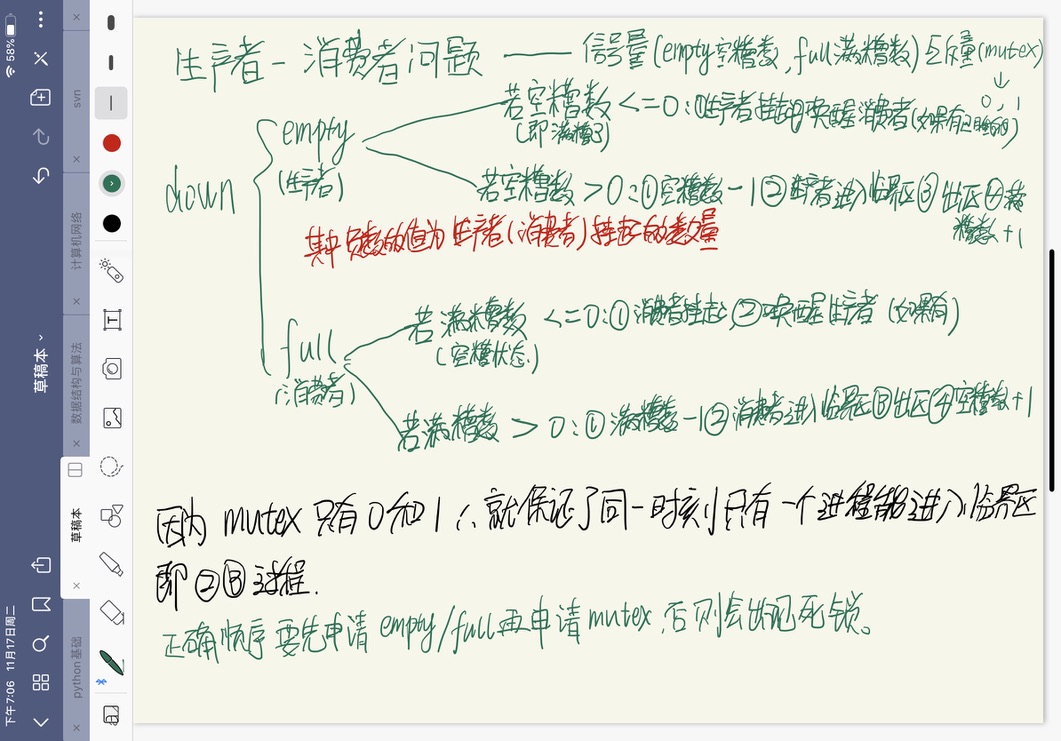 下午7:06 11月17日周二
58%
草稿本
python基础
草稿本
数据结构与算法
计算机网络
svn
生产者-消费者问题 —— 信号量(empty空槽数,full满槽数)互斥量(mutex)
↓
0,1
down
empty
(生产者)
若空槽数<=0:生产者挂起唤醒消费者(如果有)
(即满槽了)
若空槽数>0:①空槽数-1②生产者进入临界区③出区④满
槽数+1
其中负数的值为生产者(消费者)挂起的数量
full
(消费者)
若满槽数<=0:①消费者挂起,②唤醒生产者(如果有)
(空槽状态)
若满槽数>0:①满槽数-1②消费者进入临界区③出区④空槽数+1
因为mutex只有0和1∴就保证了同一时刻只有一个进程能够进入临界区
即②③过程.
正确顺序要先申请empty/full再申请mutex,否则会出现死锁。